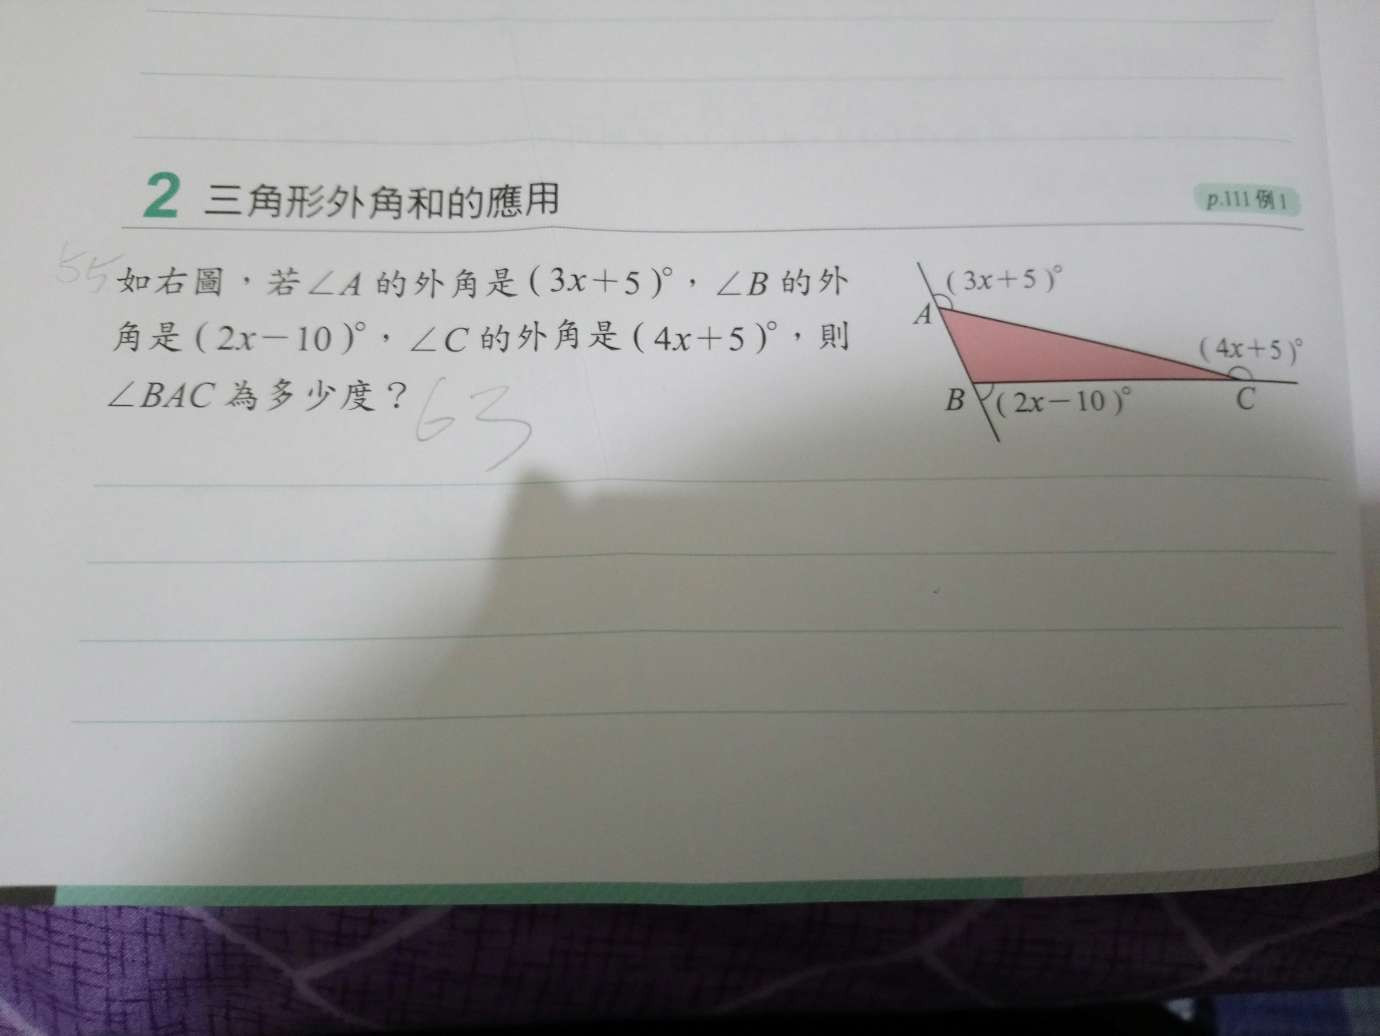 2 三角形外角和的應用
p.111 例1
55
如右圖，若∠A 的外角是(3x+5)°，∠B 的外
角是(2x-10)°，∠C 的外角是(4x+5)°，則
∠BAC 為多少度？ 63
(3x+5)°
A
(4x+5)°
B (2x-10)°
C